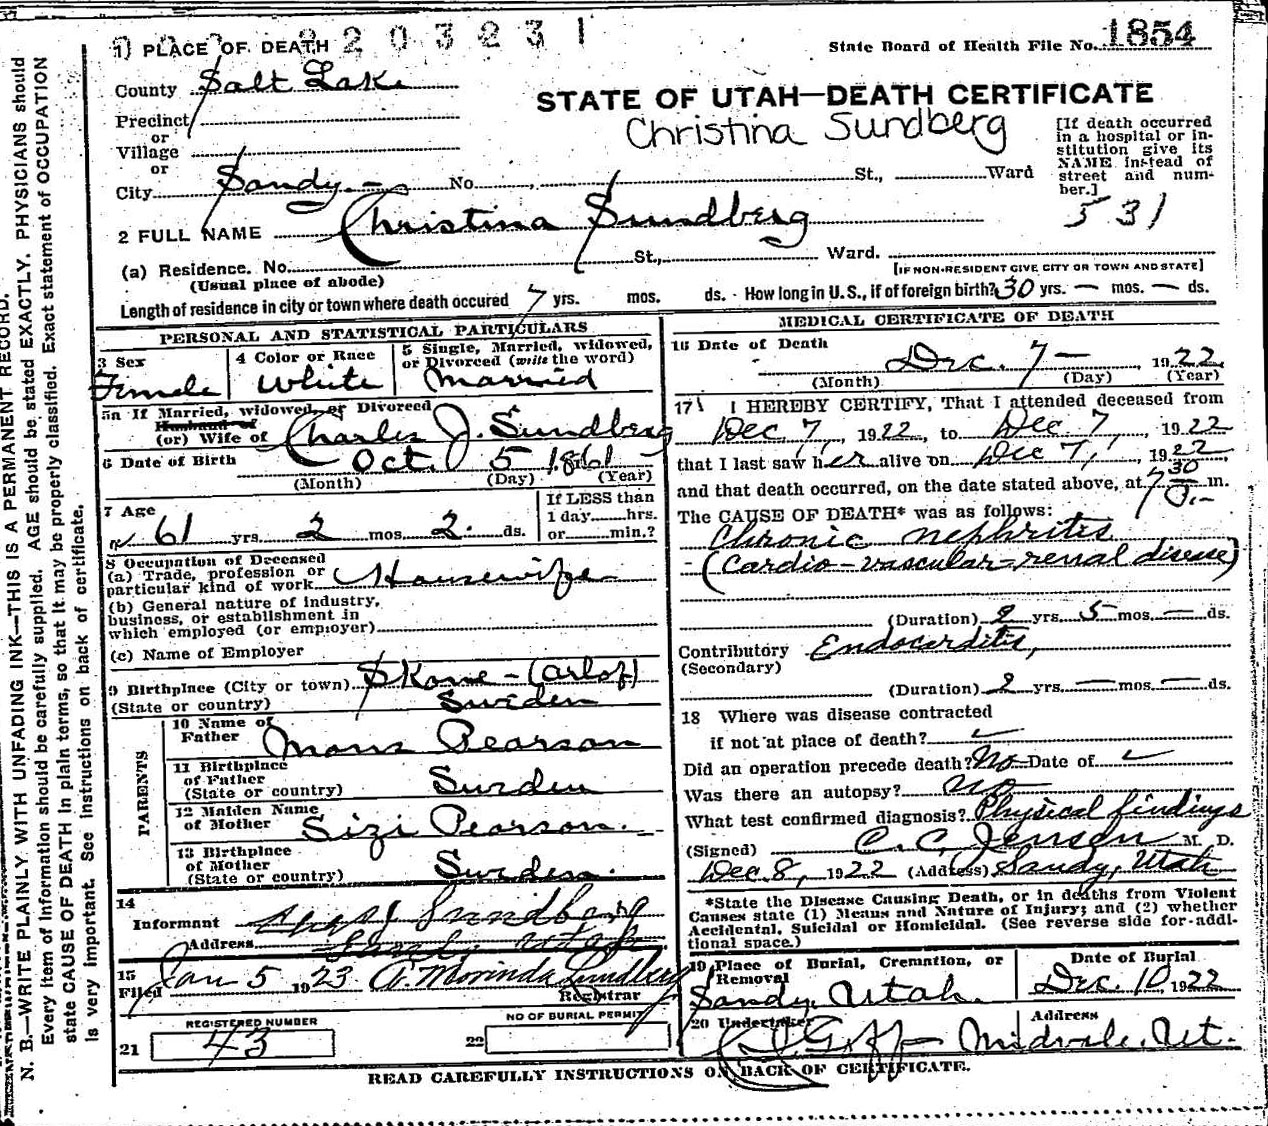 220 3231
1) PLACE OF DEATH
State Board of Health File No. 1854
County Salt Lake
STATE OF UTAH—DEATH CERTIFICATE
Precinct
or
Village
or
Christina Sundberg
[If death occurred
in a hospital or in-
stitution give its
NAME instead of
street and num-
ber.]
City Sandy No. St., Ward
531
2 FULL NAME Christina Sundberg
(a) Residence. No. St., Ward.
(Usual place of abode)
[IF NON-RESIDENT GIVE CITY OR TOWN AND STATE]
Length of residence in city or town where death occured 7 yrs. mos. ds. - How long in U.S., if of foreign birth? 30 yrs. — mos. — ds.
PERSONAL AND STATISTICAL PARTICULARS
3 Sex
Female
4 Color or Race
White
5 Single, Married, widowed,
or Divorced (write the word)
Married
5a If Married, widowed, or Divorced
Husband of
(or) Wife of Charles J. Sundberg
6 Date of Birth Oct. 5 1861
(Month) (Day) (Year)
7 Age
61 yrs. 2 mos. 2 ds.
If LESS than
1 day......hrs.
or......min.?
8 Occupation of Deceased
(a) Trade, profession or
particular kind of work Housewife
(b) General nature of industry,
business, or establishment in
which employed (or employer)
(c) Name of Employer
9 Birthplace (City or town) Skone - (Arlof)
(State or country) Sweden
PARENTS
10 Name of
Father Mons Pearson
11 Birthplace
of Father
(State or country) Sweden
12 Maiden Name
of Mother Sizi Pearson.
13 Birthplace
of Mother
(State or country) Sweden.
14
Informant Sundberg
Address Sandy Utah
15
Filed Jan 5 1923 A. Morinda Sundberg
Registrar
REGISTERED NUMBER
21 43
NO OF BURIAL PERMIT
22
MEDICAL CERTIFICATE OF DEATH
16 Date of Death
Dec. 7 — 1922
(Month) (Day) (Year)
17 I HEREBY CERTIFY, That I attended deceased from
Dec 7, 1922, to Dec. 7, 1922
that I last saw her alive on Dec 7, 1922,
and that death occurred, on the date stated above, at 7 30 m.
The CAUSE OF DEATH* was as follows:
Chronic nephritis
(Cardio-vascular-renal disease)
(Duration) 2 yrs. 5 mos. — ds.
Contributory Endocarditis,
(Secondary)
(Duration) 2 yrs. — mos. — ds.
18 Where was disease contracted
if not at place of death? ✓
Did an operation precede death? No Date of ✓
Was there an autopsy? No
What test confirmed diagnosis? Physical findings
(Signed) C. C. Jensen M. D.
Dec. 8, 1922 (Address) Sandy, Utah
*State the Disease Causing Death, or in deaths from Violent
Causes state (1) Means and Nature of Injury; and (2) whether
Accidental, Suicidal or Homicidal. (See reverse side for addi-
tional space.)
19 Place of Burial, Cremation, or
Removal
Sandy, Utah.
Date of Burial
Dec. 10, 1922
20 Undertaker
Goff
Address
Midvale, Ut.
READ CAREFULLY INSTRUCTIONS ON BACK OF CERTIFICATE.
N. B.—WRITE PLAINLY WITH UNFADING INK—THIS IS A PERMANENT RECORD.
Every item of information should be carefully supplied. AGE should be stated EXACTLY. PHYSICIANS should
state CAUSE OF DEATH in plain terms, so that it may be properly classified. Exact statement of OCCUPATION
is very important. See instructions on back of certificate.